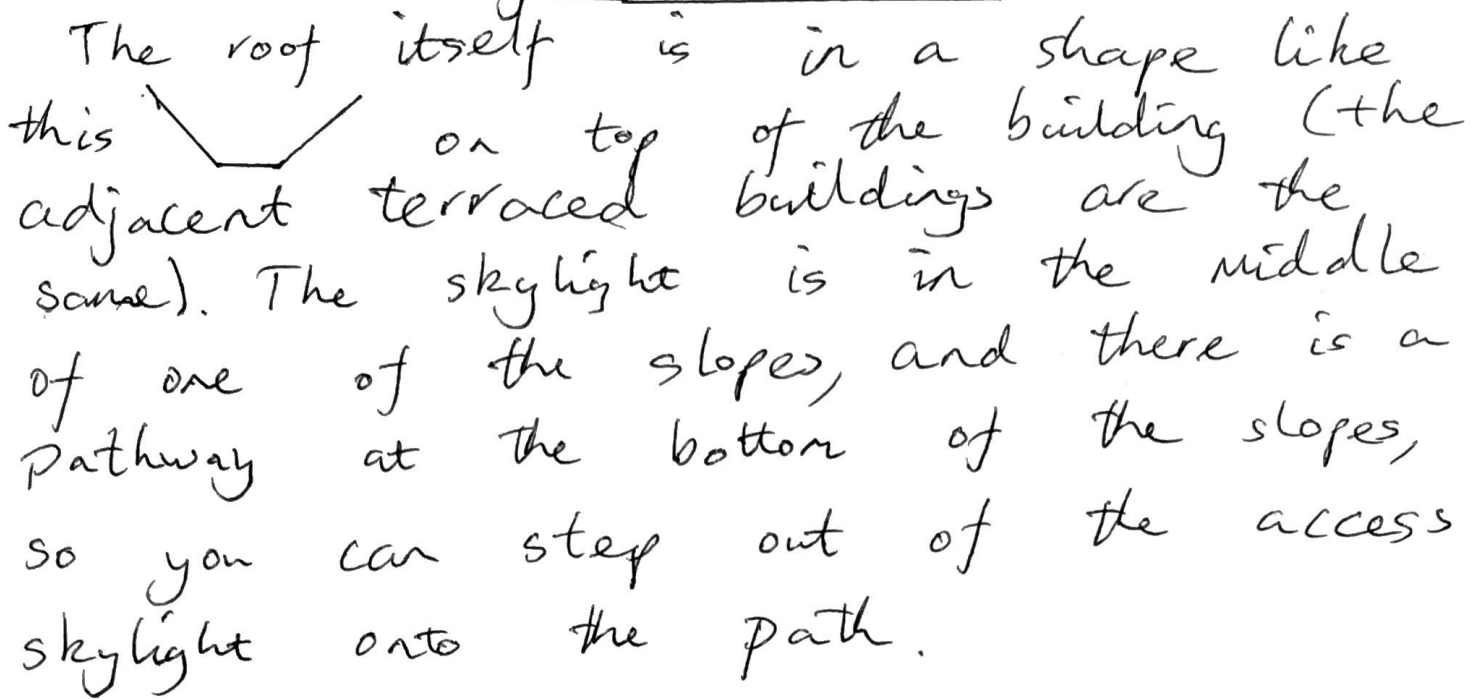 The roof itself is in a shape like
this on top of the building (the
adjacent terraced buildings are the
same). The skylight is in the middle
of one of the slopes, and there is a
pathway at the bottom of the slopes,
so you can step out of the access
skylight onto the path.